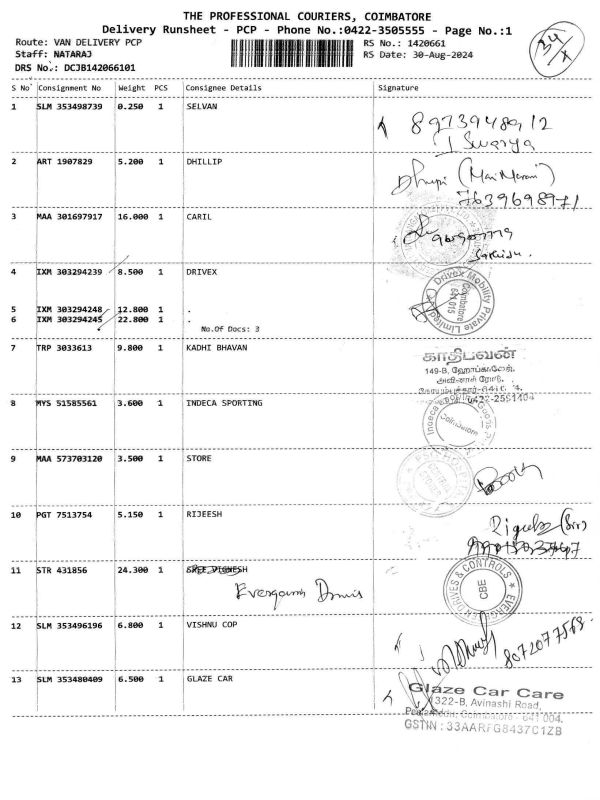 THE PROFESSIONAL COURIERS, COIMBATORE
Delivery Runsheet - PCP - Phone No.:0422-3505555 - Page No.:1
Route: VAN DELIVERY PCP
Staff: NATARAJ
DRS No.: DCJB142066101
RS No.: 1420661
RS Date: 30-Aug-2024
S No Consignment No Weight PCS Consignee Details Signature
1 SLM 353498739 0.250 1 SELVAN
Swarya
2 ART 1907829 5.200 1 DHILLIP
7639698971
3 MAA 301697917 16.000 1 CARIL
4 IXM 303294239 8.500 1 DRIVEX
Drivex Mobility Private Limited
Coimbatore
641 015
5 IXM 303294248 12.800 1 .
6 IXM 303294245 22.800 1 .
No.Of Docs: 3
7 TRP 3033613 9.800 1 KADHI BHAVAN
காதிபவன்
149-B,
அவினாசி ரோடு,
0422-2591404
8 MYS 51585561 3.600 1 INDECA SPORTING
Indeca
Coimbatore
9 MAA 573703120 3.500 1 STORE
10 PGT 7513754 5.150 1 RIJEESH
11 STR 431856 24.300 1 SREE VIGNESH
DRIVES & CONTROLS
CBE
12 SLM 353496196 6.800 1 VISHNU COP
8072077568
13 SLM 353480409 6.500 1 GLAZE CAR
Glaze Car Care
1322-B, Avinashi Road,
Coimbatore - 641 004.
GSTIN : 33AARFG8437C1ZB